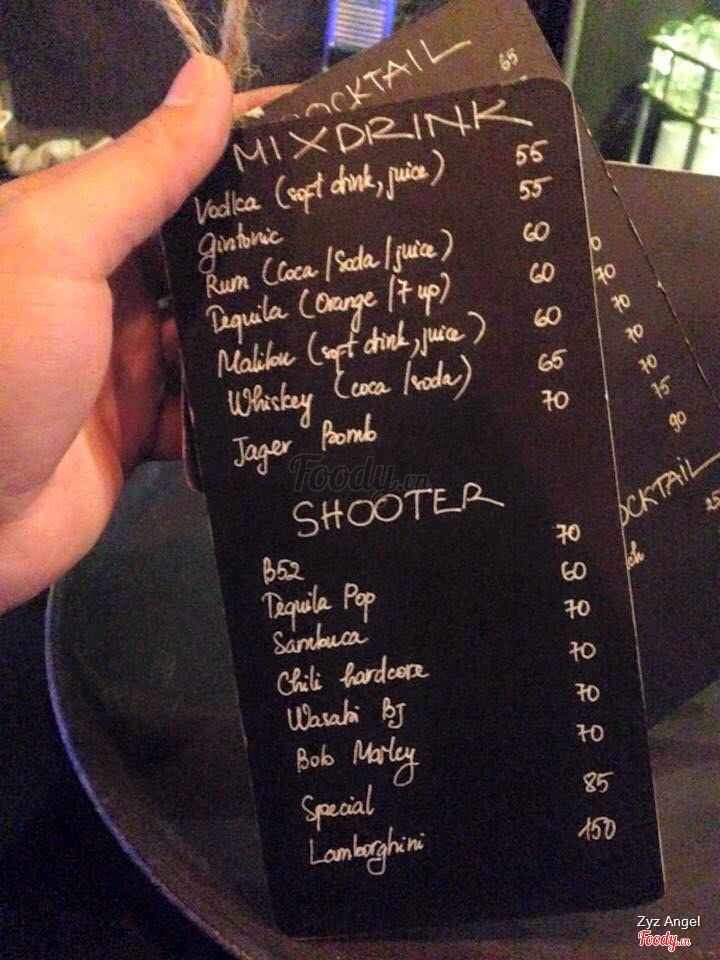 COCKTAIL
65
MIXDRINK
Vodka (soft drink, juice) 55
Gintonic 55
Rum (Coca/Soda/juice) 60
Tequila (Orange/7 up) 60
Malibu (soft drink, juice) 60
Whiskey (coca/soda) 65
Jager Bomb 70
SHOOTER
B52 70
Tequila Pop 60
Sambuca 70
Chili hardcore 70
Wasabi BJ 70
Bob Marley 70
Special 85
Lamborghini 150
0
70
70
70
70
75
90
OCKTAIL
25
Foody.vn
Zyz Angel
Foody.vn